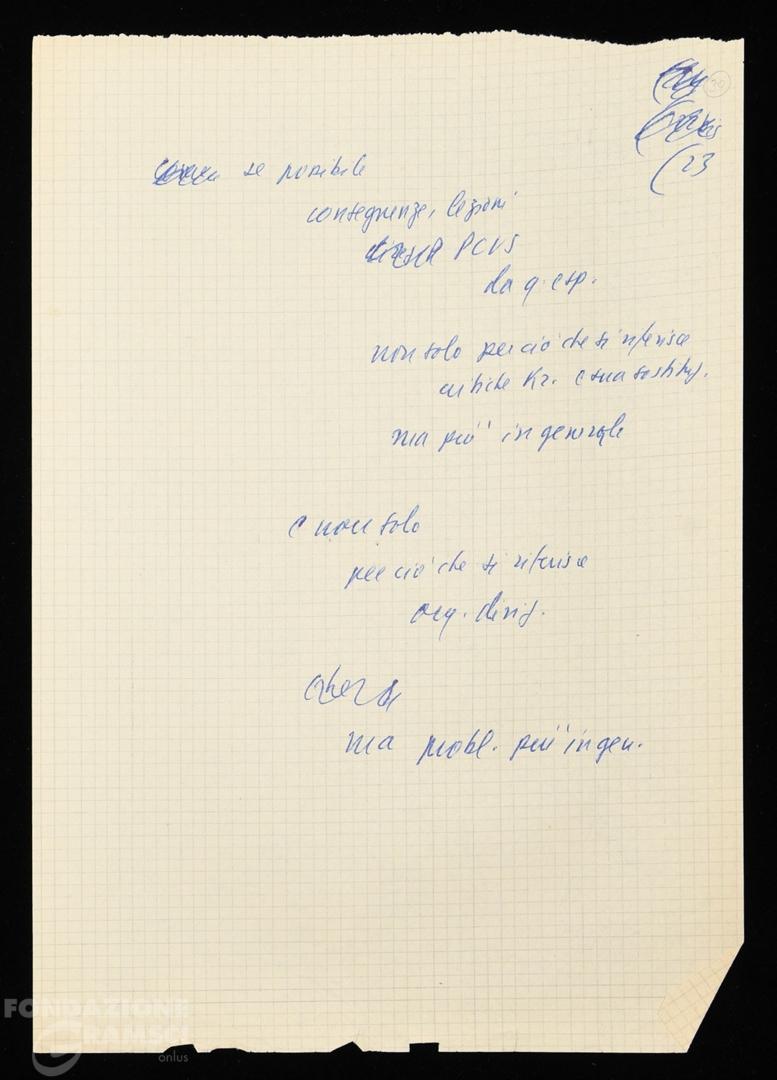 (23
se possibile
conseguenze, lezioni
PCUS
da q. esp.
non solo per ciò che si riferisce
critiche Kr. e sua sostituz.
ma più in generale
e non solo
per ciò che si riferisce
org. dirig.
ma probl. più in gen.
FONDAZIONE
GRAMSCI
onlus